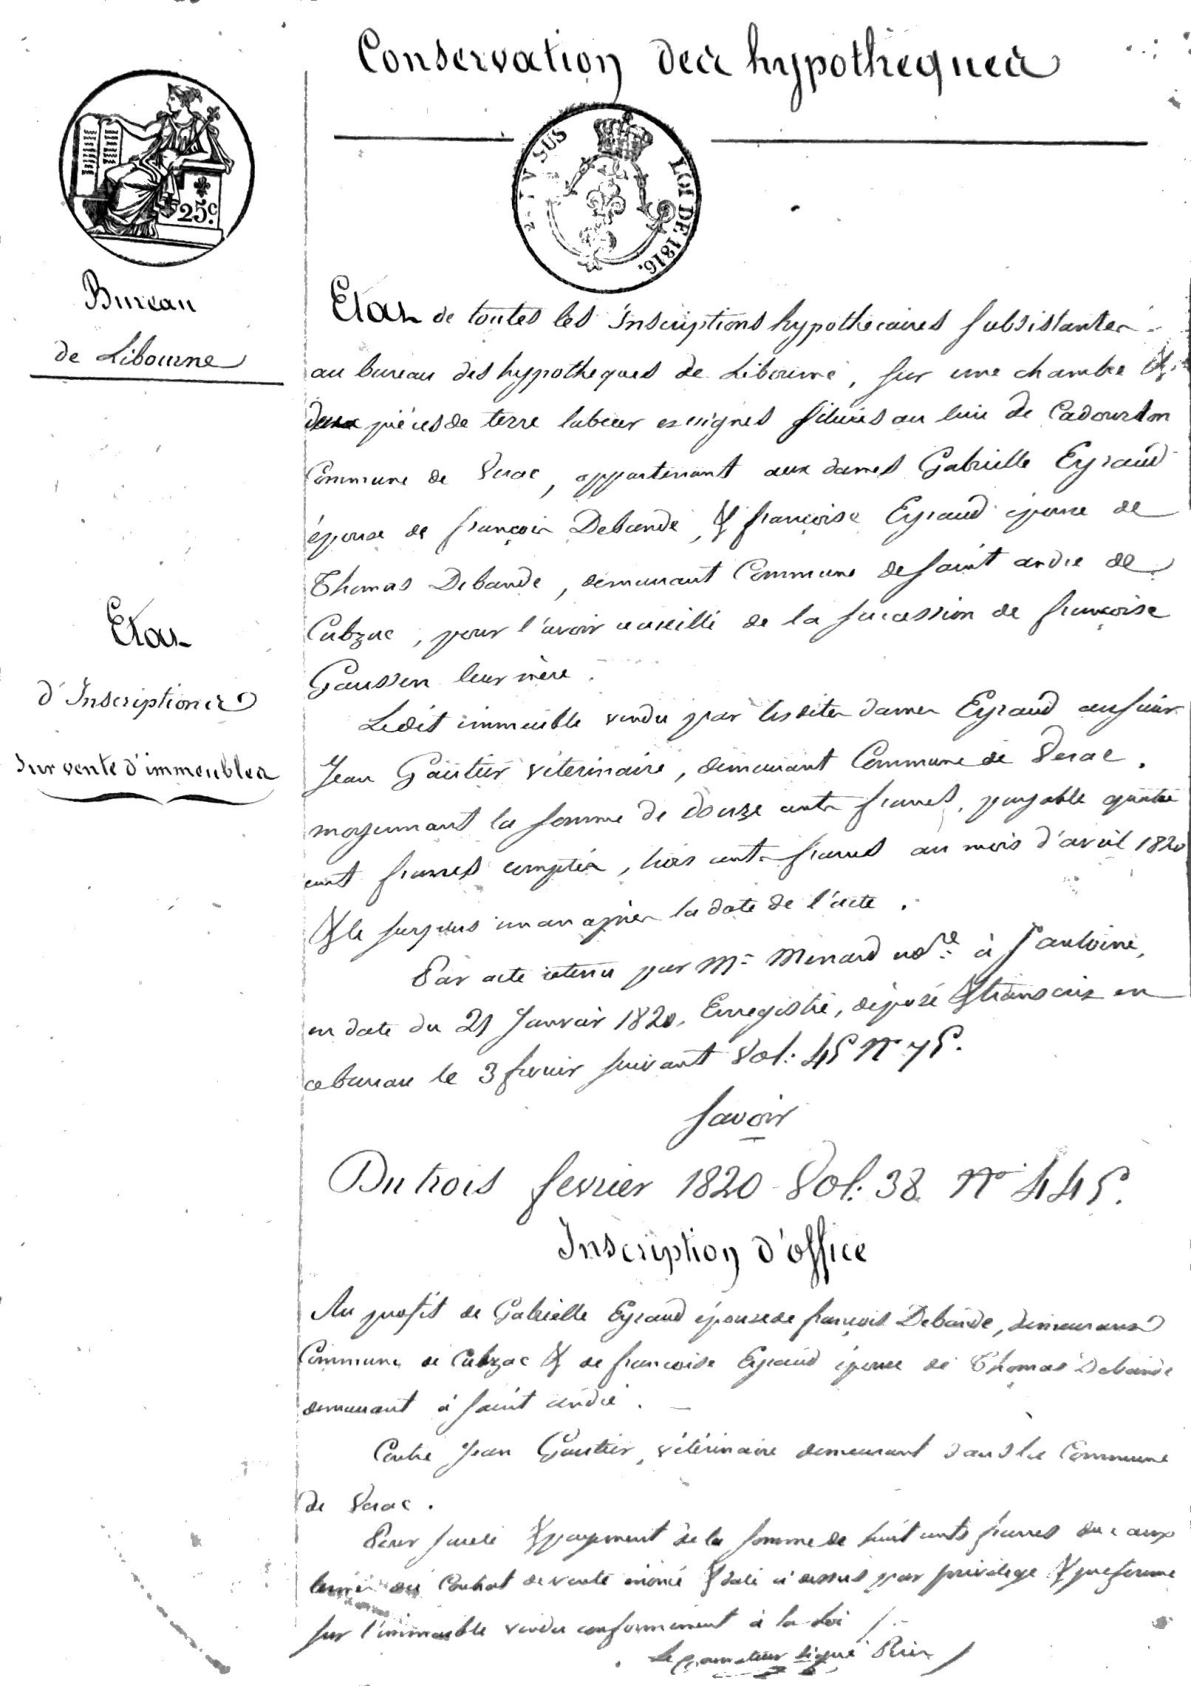 Conservation des hypotheques
25c
LOI DE 1816.
SUS
Bureau
de Libourne
Etat
d'Inscriptions
Sur vente d'immeubles
Etat de toutes les Inscriptions hypothecaires Subsistantes
au bureau des hypotheques de Libourne, sur une chambre &
deux piéces de terre labour et vignes situés au lieu de
Commune de Verac, appartenant aux dames Gabrielle Eyraud
épouse de françois Debande, & françoise Eyraud épouse de
Thomas Debande, demeurant Commune de Saint andré de
Cubzac, pour l'avoir recueilli de la sucession de françoise
Gaussen leur mère.
Ledit immeuble vendu par lesdites dames Eyraud au sieur
Jean Gautier véterinaire, demeurant Commune de Verac,
moyennant la somme de douze cents francs, payable quatre
cent francs comptés, trois cents francs au mois d'avril 1820
& le surplus un an après la date de l'acte.
Par acte retenu par Me Menard nore à St antoine,
en date du 21 Janvier 1820, Enregistré, déposé & transcris en
ce bureau le 3 fevrier suivant Vol: 45 No 75.
Savoir
Du trois fevrier 1820 Vol: 38 No 445.
Inscription d'office
Au profit de Gabrielle Eyraud épouse de françois Debande, demeurans
Commune de Cubzac & de francoise Eyraud épouse de Thomas Debande
demeurant à Saint andré.
Contre Jean Gautier, vétérinaire demeurant dans la Commune
de Verac.
Pour sureté & payement de la somme de huit cents francs due aux
du Contrat de vente énoncé & daté ci dessus par privilege &
sur l'immeuble vendu conformement à la Loi
Le signé